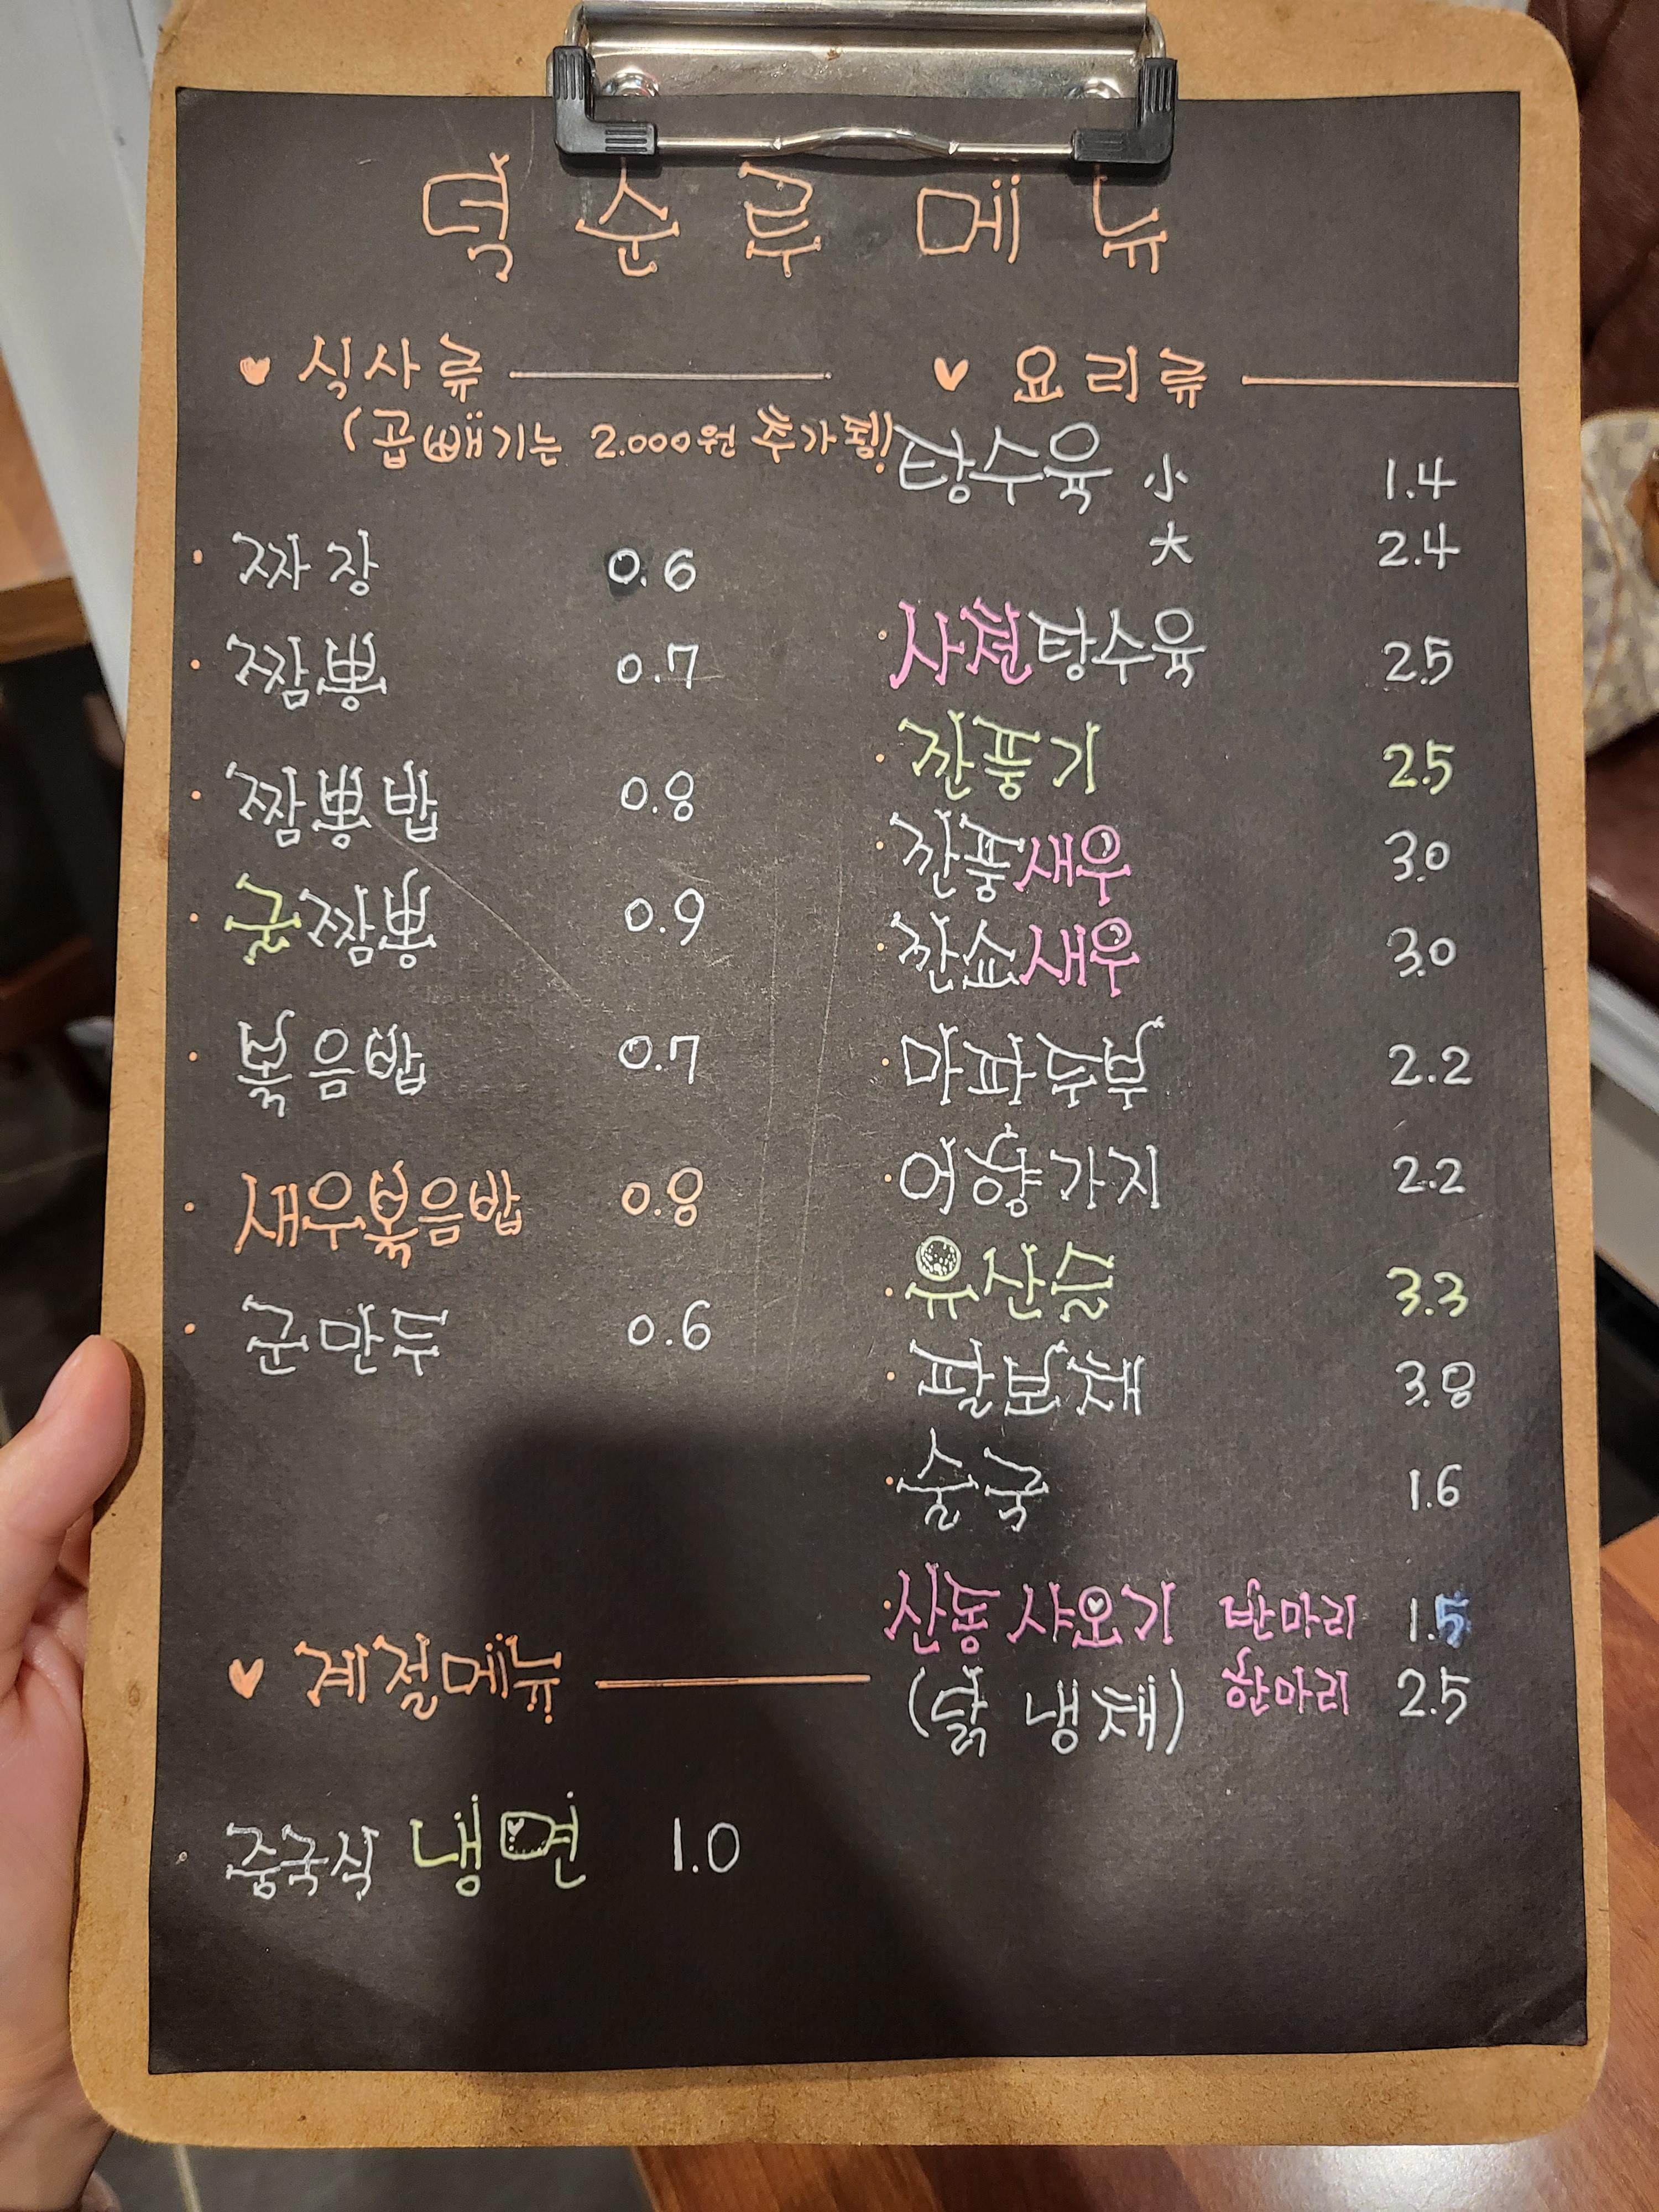 덕순루 메뉴
♥ 식사류
(곱빼기는 2.000원 추가됨!)
· 짜장 0.6
· 짬뽕 0.7
· 짬뽕밥 0.8
· 굴짬뽕 0.9
· 볶음밥 0.7
· 새우볶음밥 0.8
· 군만두 0.6
♥ 계절메뉴
· 중국식 냉면 1.0
♥ 요리류
탕수육 小 1.4
大 2.4
· 사천탕수육 2.5
· 깐풍기 2.5
· 깐풍새우 3.0
· 깐쇼새우 3.0
· 마파두부 2.2
· 어향가지 2.2
· 유산슬 3.3
· 팔보채 3.8
· 술국 1.6
· 산동 샤오기 반마리 1.5
(닭 냉채) 한마리 2.5